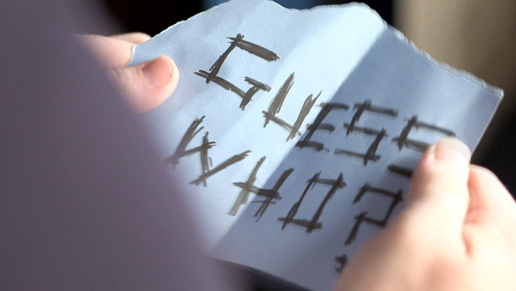 GUESS
WHO?